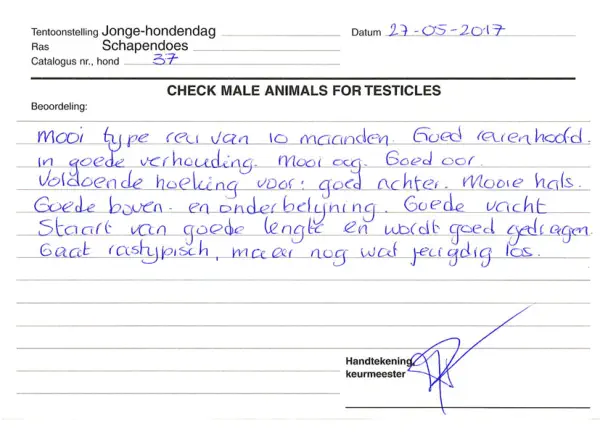 Tentoonstelling Jonge-hondendag Datum 27-05-2017
Ras Schapendoes
Catalogus nr., hond 37
CHECK MALE ANIMALS FOR TESTICLES
Beoordeling:
Mooi type reu van 10 maanden. Goed reuenhoofd.
in goede verhouding. Mooi oog. Goed oor.
Voldoende hoeking voor; goed achter. Mooie hals.
Goede boven- en onderbelijning. Goede vacht
Staart van goede lengte en wordt goed gedragen.
Gaat rastypisch, maar nog wat jeugdig los.
Handtekening,
keurmeester